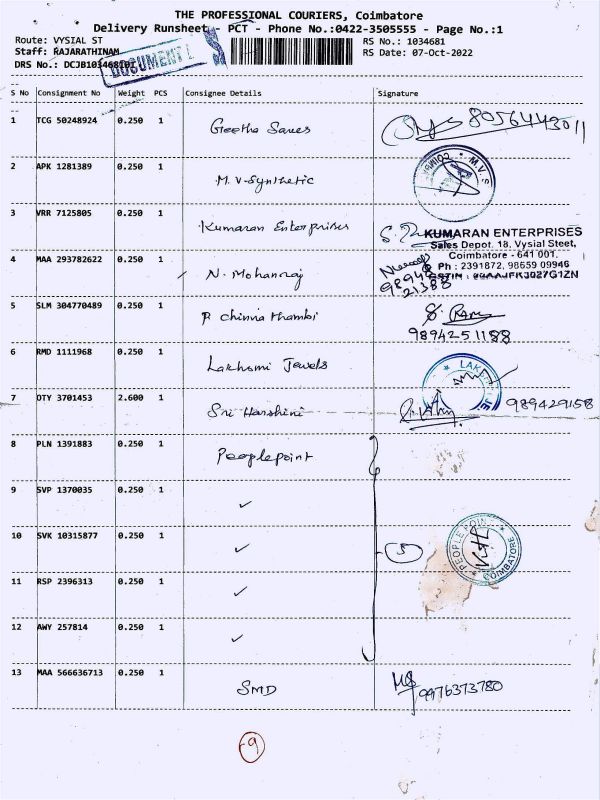 THE PROFESSIONAL COURIERS, Coimbatore
Delivery Runsheet - PCT - Phone No.:0422-3505555 - Page No.:1
Route: VYSIAL ST RS No.: 1034681
Staff: RAJARATHINAM RS Date: 07-Oct-2022
DRS No.: DCJB1034681
DOCUMENT
S No Consignment No Weight PCS Consignee Details Signature
1 TCG 50248924 0.250 1 Geetha Sarees 8056443011
2 APK 1281389 0.250 1 M.V-Synthetic M.V.S
3 VRR 7125805 0.250 1 Kumaran Enterprises
KUMARAN ENTERPRISES
Sales Depot. 18. Vysial Steet,
Coimbatore - 641 001.
Ph : 2391872, 98659 09946
4 MAA 293782622 0.250 1 N. Mohanraj 98946 21388
5 SLM 304770489 0.250 1 P. Chinnathambi
9894251188
6 RMD 1111968 0.250 1 Lakshmi Jewels
7 OTY 3701453 2.600 1 Sri Harshini 989429158
8 PLN 1391883 0.250 1 Peoplepoint
9 SVP 1370035 0.250 1 ✓
10 SVK 10315877 0.250 1 ✓ 5 PEOPLE POINT COIMBATORE
11 RSP 2396313 0.250 1 ✓
12 AWY 257814 0.250 1 ✓
13 MAA 566636713 0.250 1 SMD 9976373780
9